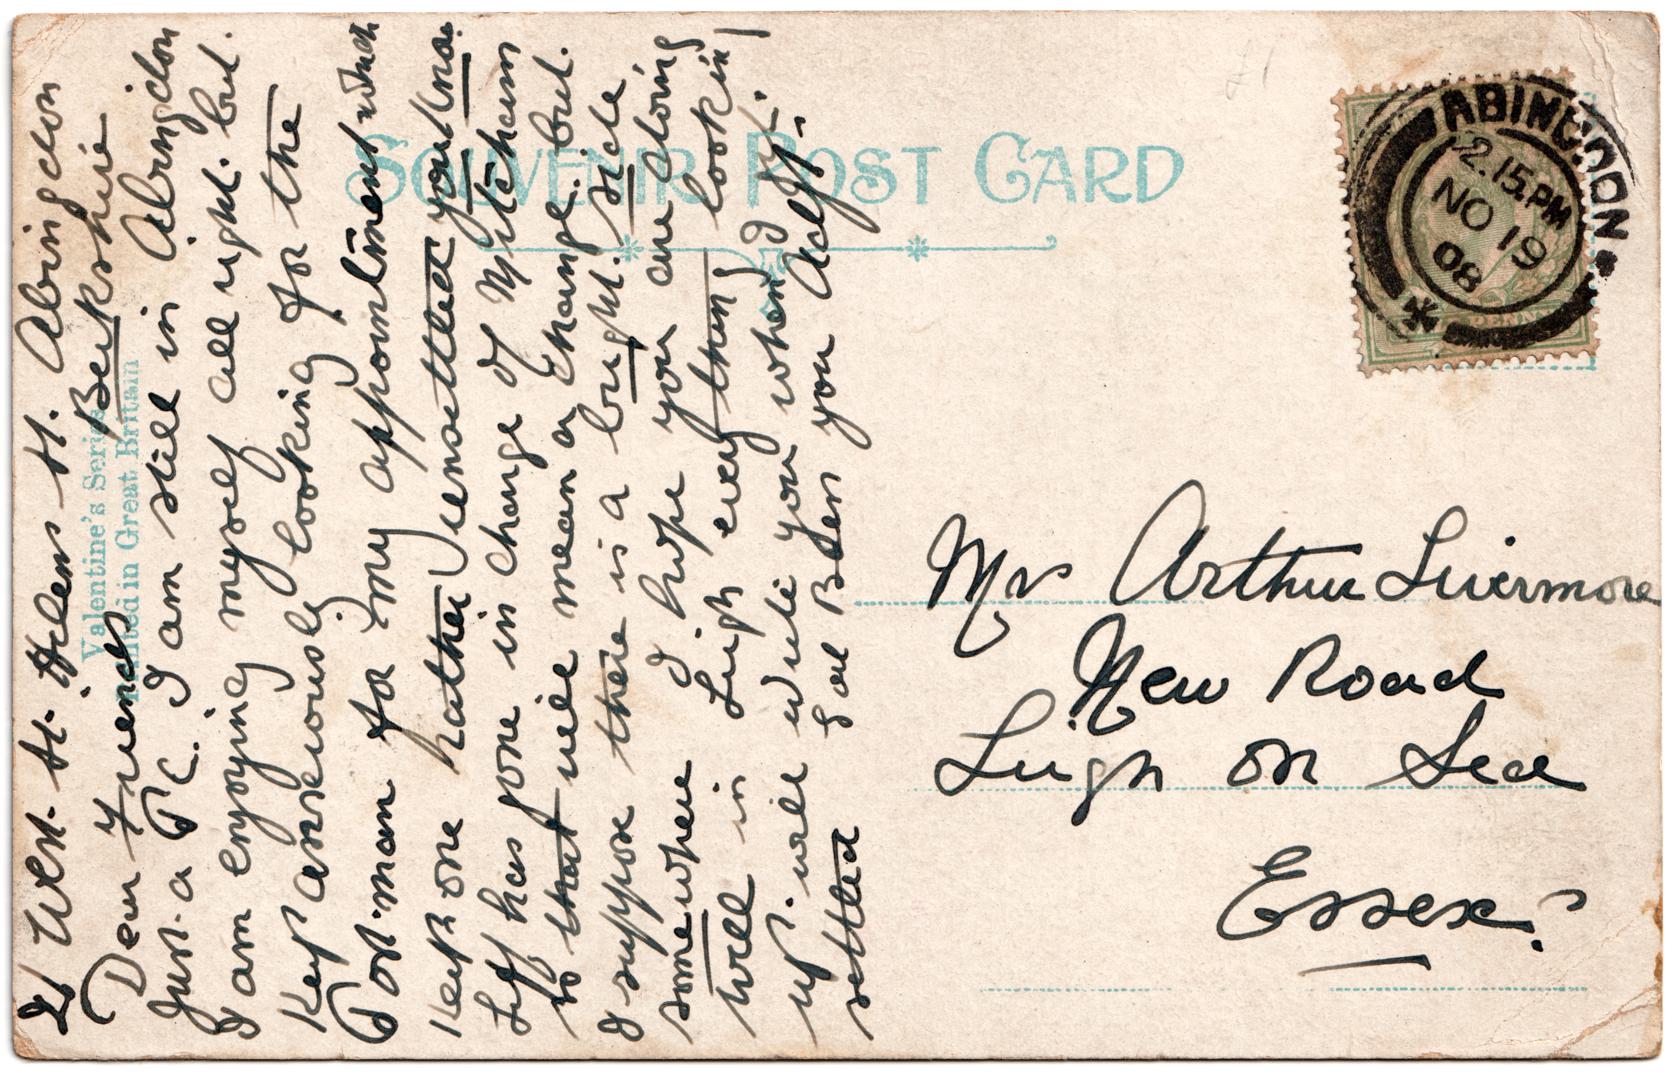 21 West St. Helens St. Abingdon
Berkshire
Dear Friends
Just a P C. I am still in Abingdon
I am enjoying myself all right. but.
Keep anxiously looking for the
Postman for my appointment which
Keep one rather unsettled you kno.
Life has gone in change of Mitcham
so that will mean a Change. but.
I suppose there is a bright side
somewhere I hope you are doing
well in Leigh every thing look in
up. will write you when I get
settled God Bless you Adff.
SOUVENIR POST CARD
Valentine's Series
Printed in Great Britain
ABINGDON
2.15.PM
NO 19
08
PENNY
Mrs Arthur Livermore
New Road
Leigh on Sea
Essex.